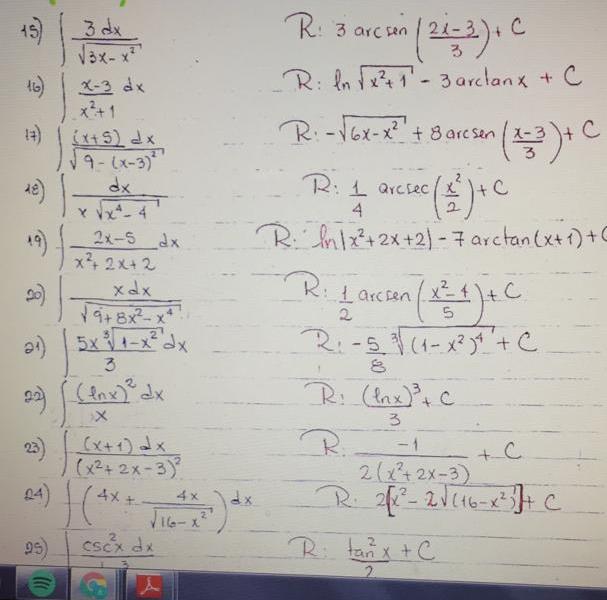 15) ∫ 3dx / √(3x-x²) R: 3 arcsen (2x-3 / 3) + C
16) ∫ x-3 / x²+1 dx R: ln √(x²+1) - 3 arctan x + C
17) ∫ (x+5) dx / √(9-(x-3)²) R: -√(6x-x²) + 8 arcsen (x-3 / 3) + C
18) ∫ dx / x √(x⁴-4) R: 1/4 arcsec (x² / 2) + C
19) ∫ 2x-5 / x²+2x+2 dx R: ln|x²+2x+2| - 7 arctan(x+1) + C
20) ∫ x dx / √(9+8x²-x⁴) R: 1/2 arcsen (x²-4 / 5) + C
21) ∫ 5x ∛(1-x²) / 3 dx R: -5/8 ∛((1-x²)⁴) + C
22) ∫ (lnx)² / x dx R: (lnx)³ / 3 + C
23) ∫ (x+1) dx / (x²+2x-3)² R: -1 / 2(x²+2x-3) + C
24) ∫ (4x + 4x / √(16-x²)) dx R: 2[x² - 2√(16-x²)] + C
25) ∫ csc²x dx R: tan²x / 2 + C